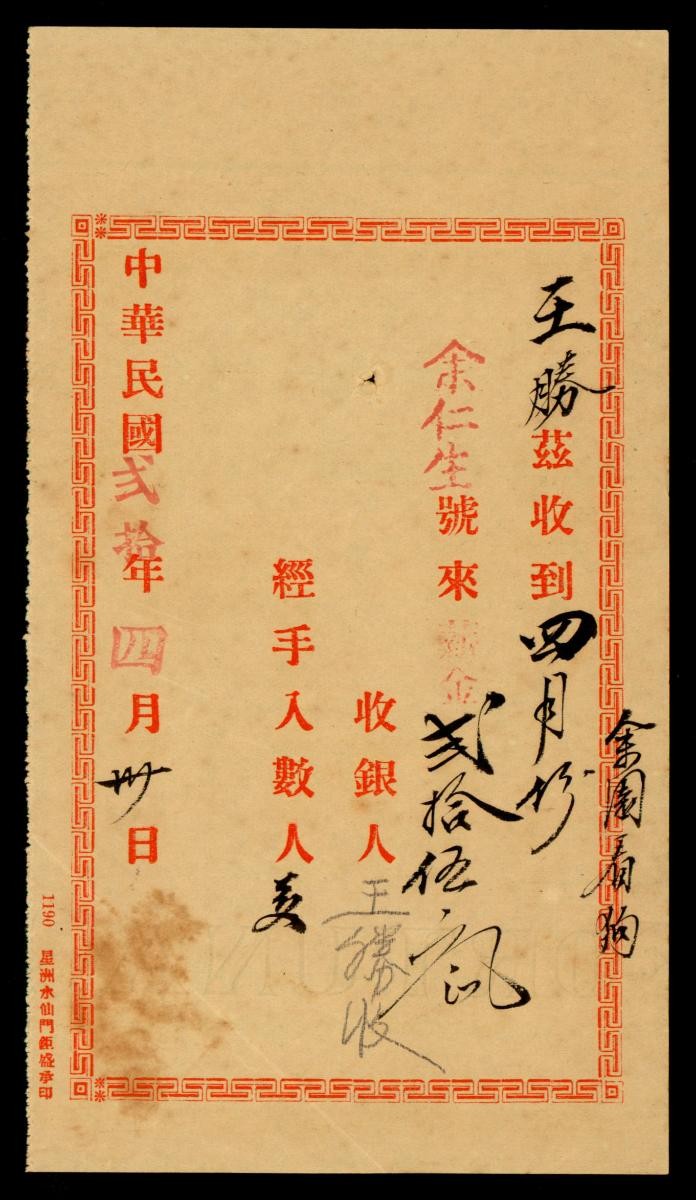 余園看狗
王勝茲收到四月份
余仁生號來薪金弍拾伍
收銀人王勝收
經手入數人
中華民國弍拾年四月卅日
1190 星洲水仙門鉅盛承印